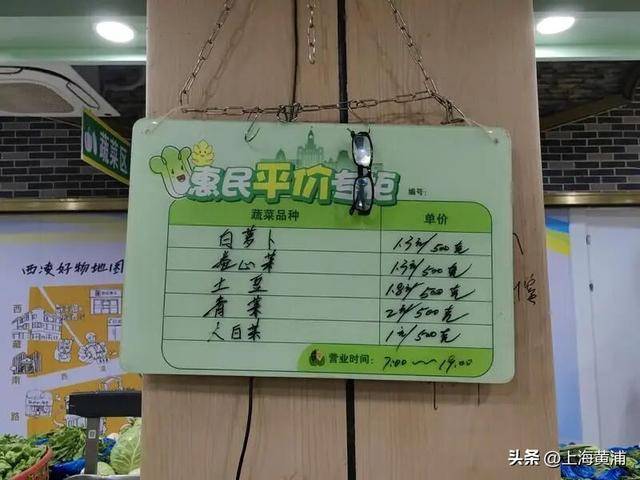 蔬菜区
惠民平价专柜
编号:
蔬菜品种 单价
白萝卜 1.5元/500克
卷心菜 1.5元/500克
土豆 1.8元/500克
青菜 2元/500克
大白菜 1元/500克
营业时间: 7:00~19:00
西凌好物地图
西藏南路
头条 @上海黄浦